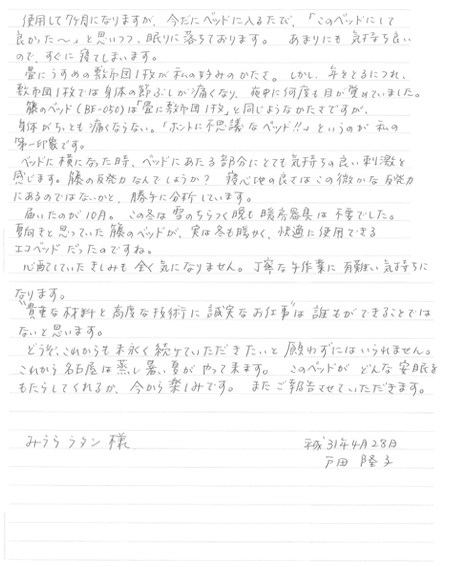 使用して7ヶ月になりますが、今だにベッドに入るたび、「このベッドにして
良かった〜」と思いつつ、眠りに落ちております。 あまりにも気持ち良い
ので、すぐに寝てしまいます。
畳にうすめの敷布団1枚が私の好みのかたさ。しかし、年をとるにつれ、
敷布団1枚では身体の節ぶしが痛くなり、夜中に何度も目が覚めていました。
籐のベッド(BE-050)は「畳に敷布団1枚」と同じようなかたさですが、
身体がちっとも痛くならない。「ホントに不思議なベッド!!」というのが私の
第一印象です。
ベッドに横になった時、ベッドにあたる部分にとても気持ちの良い刺激を
感じます。籐の反発力なんでしょうか? 寝心地の良さはこの微かな反発力
にあるのではないかと、勝手に分析しています。
届いたのが10月。この冬は雪のちらつく晩も暖房器具は不要でした。
夏向きと思っていた籐のベッドが、実は冬も暖かく、快適に使用できる
エコベッドだったのですね。
心配していたきしみも全く気になりません。丁寧な手作業に有難い気持ちに
なります。
"貴重な材料と高度な技術に誠実なお仕事"は誰もができることでは
ないと思います。
どうぞ、これからも末永く続けていただきたいと願わずにはいられません。
これから名古屋は蒸し暑い夏がやって来ます。 このベッドがどんな安眠を
もたらしてくれるか、今から楽しみです。 またご報告させていただきます。
みうらラタン様
平成31年4月28日
戸田 隆子